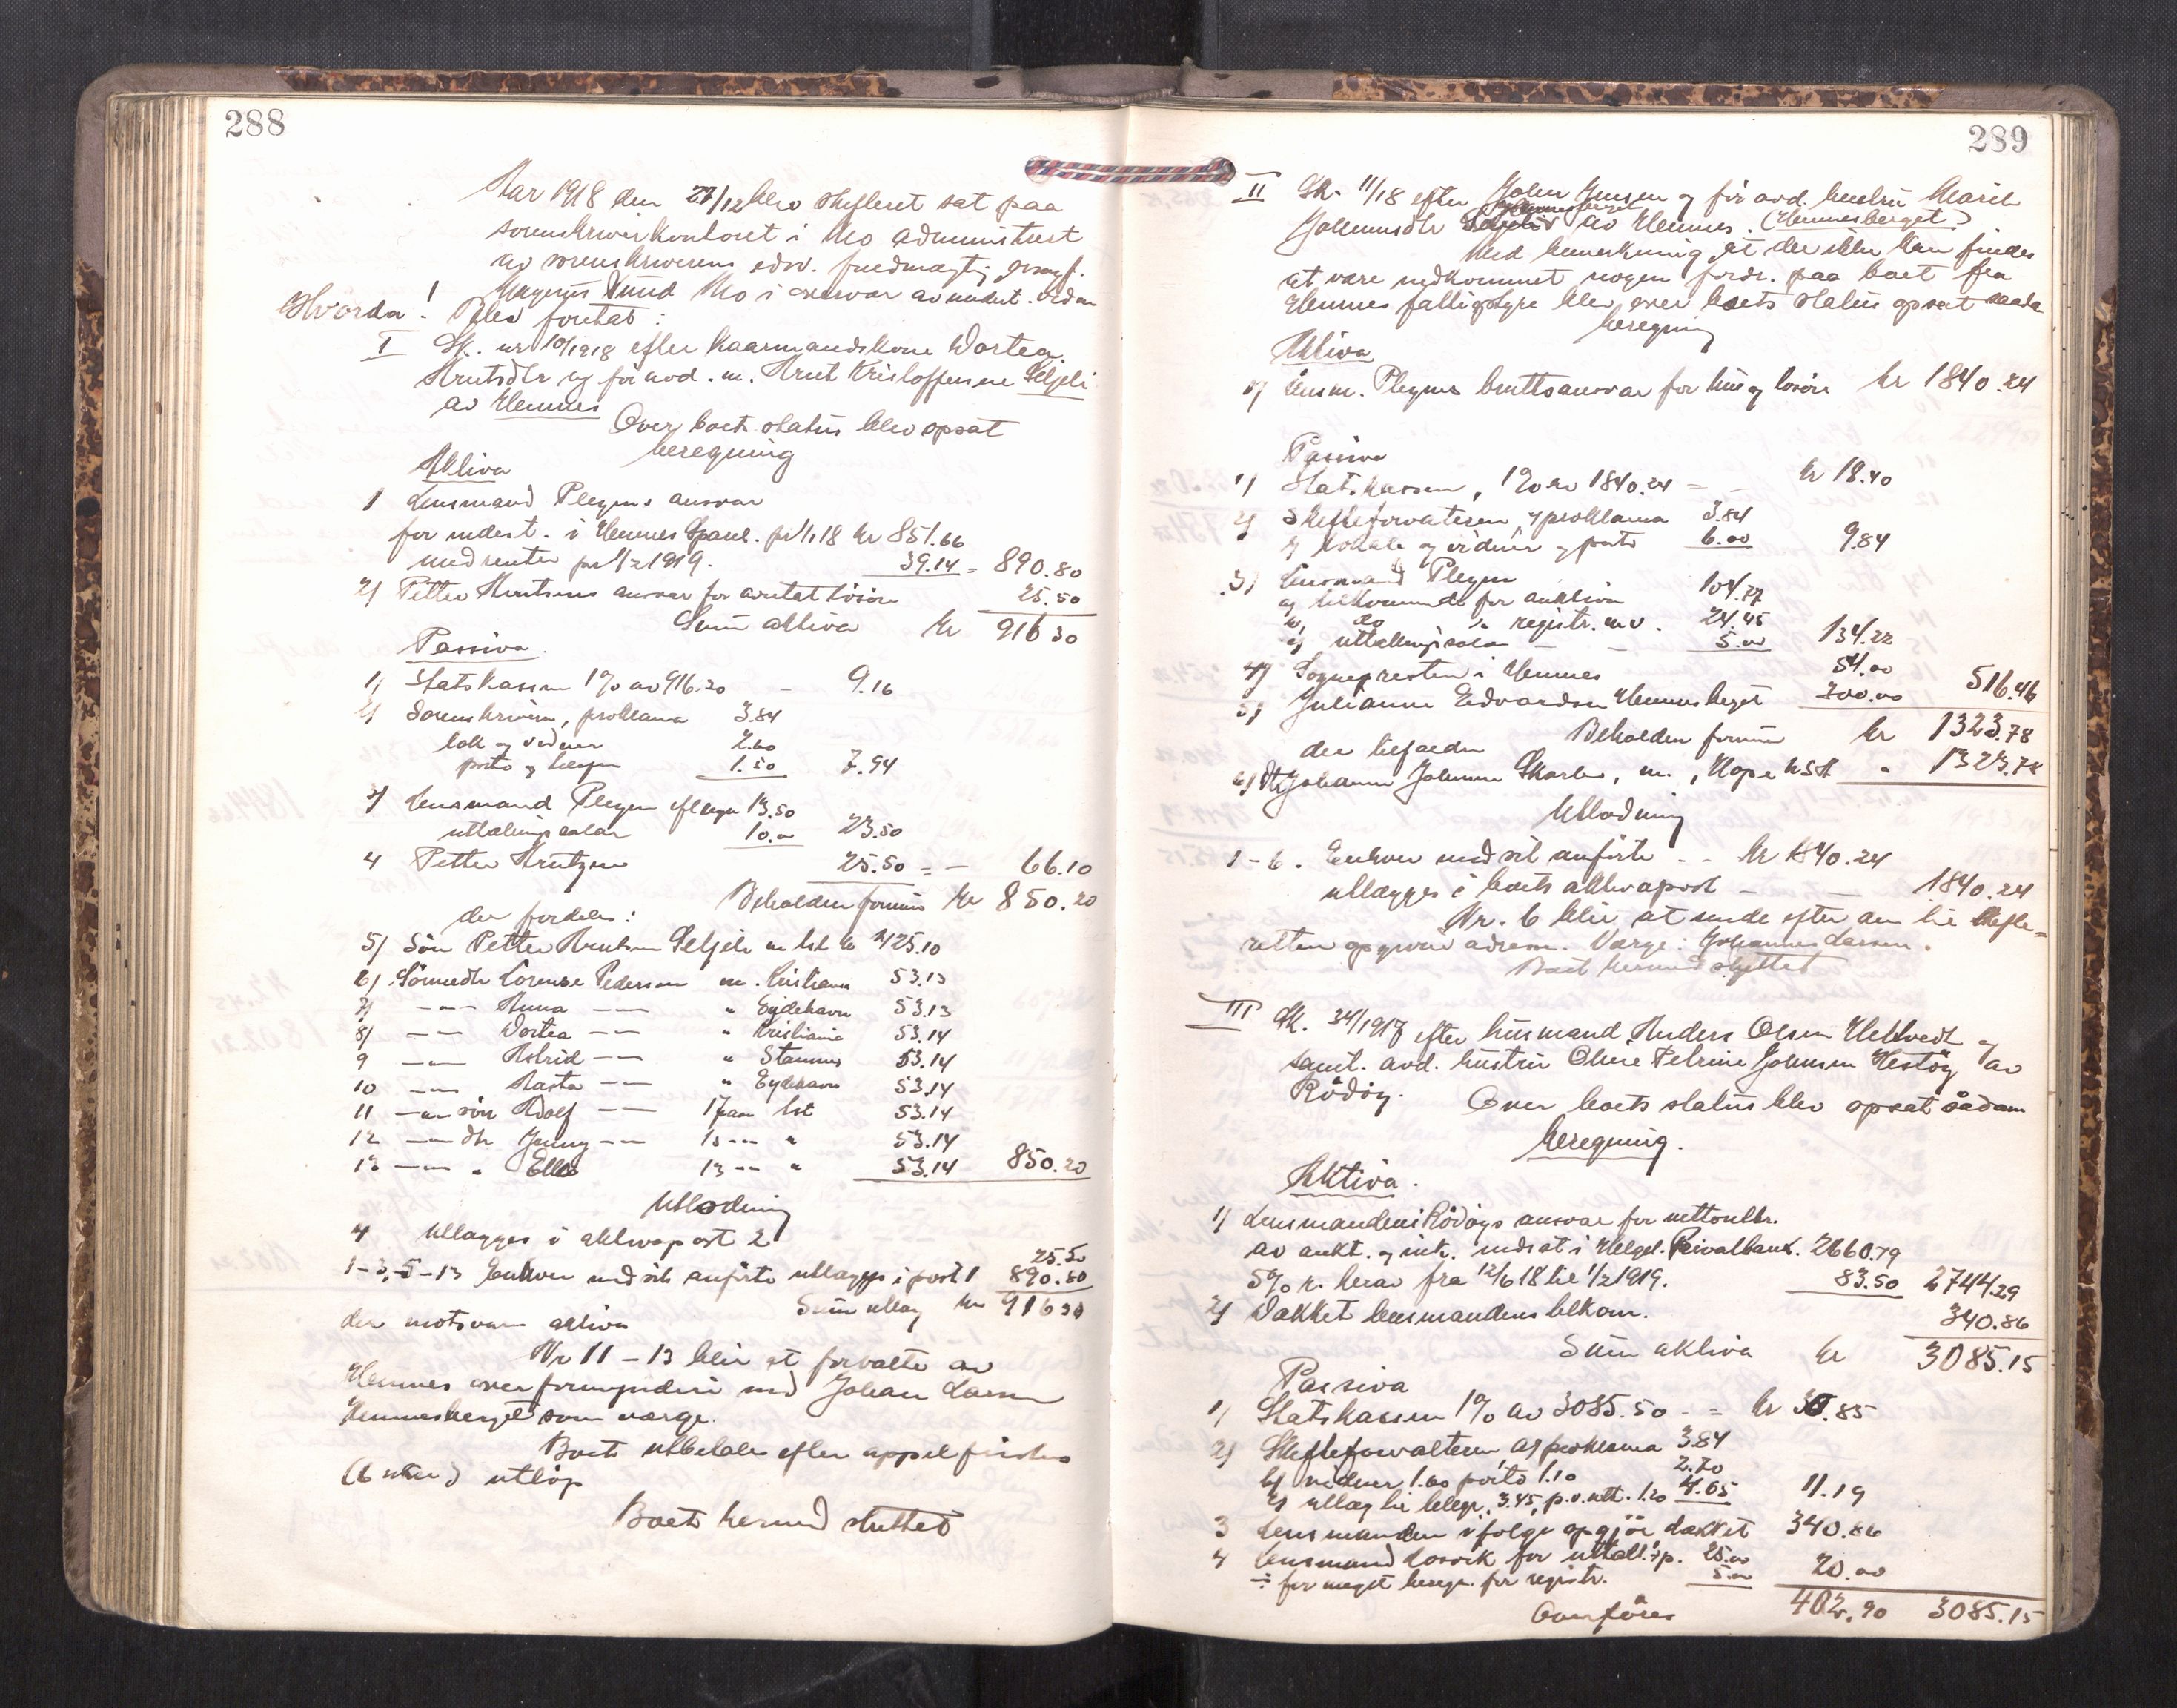 288
Aar 1918 den 27/12 blev skifteret sat paa
sorenskriverkontoret i Mo administrert
av sorenskriverens edsv. fuldmægtig
Magnus Lund Mo i nærvær av undert. vidner
Hvorda! Blev foretat:
I Sk. nr 10/1918 efter kaarmandskone Dortea
Arntsdtr og før avd. m. Arnt Kristoffersen Seljeli
av Hemnes
Over boets status blev opsat
beregning
Aktiva
1 Lensmand Plegens ansvar
for indest. i Hemnes Spareb. pr 1/1 18 kr 851.66
med renter pr 1/2 1919. 39.14 = 890.80
2) Petter Arntsens ansvar for avertat løsøre 25.50
Sum aktiva kr 916 30
Passiva.
1) Statskassen 1% av 916.30 - 9.16
2) Sorenskriveren, proklama 3.84
lok og vidner 2.60
porto og 1.50 7.94
3) Lensmand Plegen 13.50
uttælling salær 10.00 23.50
4 Petter Arntzen 25.50 = - 66.10
Beholden formue kr 850.20
der fordeles:
5) Søn Petter Arntsen Seljeli 425.10
6) Sønnedtr Lorense Pedersen m. Kristiania 53.13
7) -"- Anna -"- " Eydehavn 53.13
8) -"- Dortea -"- " Kristiania 53.14
9 -"- Astrid -"- " Stamnes 53.14
10 -"- Aasta -"- " Eydehavn 53.14
11 -"- søn Adolf -"- 17 aar 53.14
12 -"- dtr Jenny -"- 15 -"- " 53.14
13 -"- " Ella 13 -"- " 53.14 850.20
Utlodning
4 utlægges i aktivapost 2 25.50
1-3, 5-13 Enhver med sit anførte utlægges i post 1 890.80
Sum utlæg kr 916 30
der motsvarer aktiva
Nr 11 - 13 blir at forvalte av
Hemnes overformynderi med Johan Larsen
Hemnesberget som værge.
Boets utbetales efter appelfristens
(6 uker) utløp
Boets hermed sluttet
289
II Sk. 11/18 efter Johan Jensen og før avd. hustru Maril
Johannesdtr av Hemnes. (Hemnesberget)
Med bemerkning at der ikke kan findes
at være indkommet nogen fordr. paa boet fra
Hemnes fattigstyre blev over boets status opsat saadan
beregning
Aktiva
1) Lensm. Plegens bruttoansvar for hus og løsøre kr 1840.24
Passiva
1) Statskassen, 1% av 1840.24 = - kr 18.40
2) Skifteforvalteren, proklama 3.84
lokale og vidner og porto 6.00 9.84
3) Lensmand Plegen
a) tilkommende for auktion 104.77
b) do " registr. m.v. 24.45
c) uttællingssalær - - 5.00 134.22
4) Sognepresten i Hemnes 54.00
5) Julianne Edvardsen Hemnesberget 300.00 516.46
Beholden formue kr 1323.78
der tilfalder
6) Dtr Johanna Johnsen Skarbo, m., Hope " 1323.78
Utlodning
1 - 6. Enhver med sit anførte - - kr 1840.24
utlægges i boets aktivapost - - 1840.24
Nr. 6 blir at sende efter en til skifte=
retten opgiven adresse. Værge: Johannes Larsen.
Boet hermed sluttet
III Sk. 34/1917 efter husmand Anders Olsen og
saml. avd. hustru Oline Petrine Johnsen Hestøy av
Rødøy. Over boets status blev opsat sådan
beregning.
Aktiva.
1) Lensmanden i Rødøys ansvar for nettoutbr.
av aukt. og ink. indsat i Helgel. Privatbank. 2660.79
5% r. herav fra 12/6 18 til 1/2 1919. 83.50 2744.29
2) Dækket lensmandens tilkom. 340.86
Sum aktiva kr 3085.15
Passiva
1) Statskassen 1% av 3085.50 - = kr 30.85
2) Skifteforvalteren a) proklama 3.84
b) vidner 1.60 porto 1.10 2.70
c) utlæg til telegr. 3.45, p.v. utt. 1.20 4.65 11.19
3 Lensmanden ifølge opgjør dækket 340.86
4 Lensmand for uttæll. sp. 25.00
÷ for meget bereg. for registr. 5.00 20.00
Overføres 402.90 3085.15